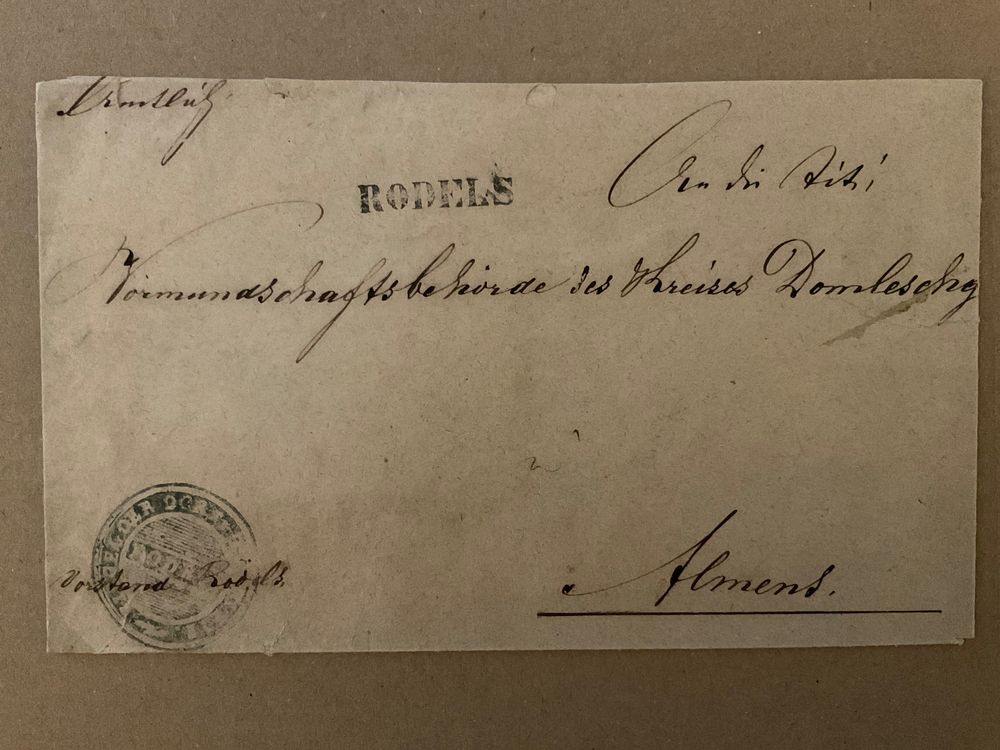 Amtlich
RODELS
An die Tit:
Vormundschaftsbehörde des Kreises Domleschg
in
Almens.
Vorstand Rodels